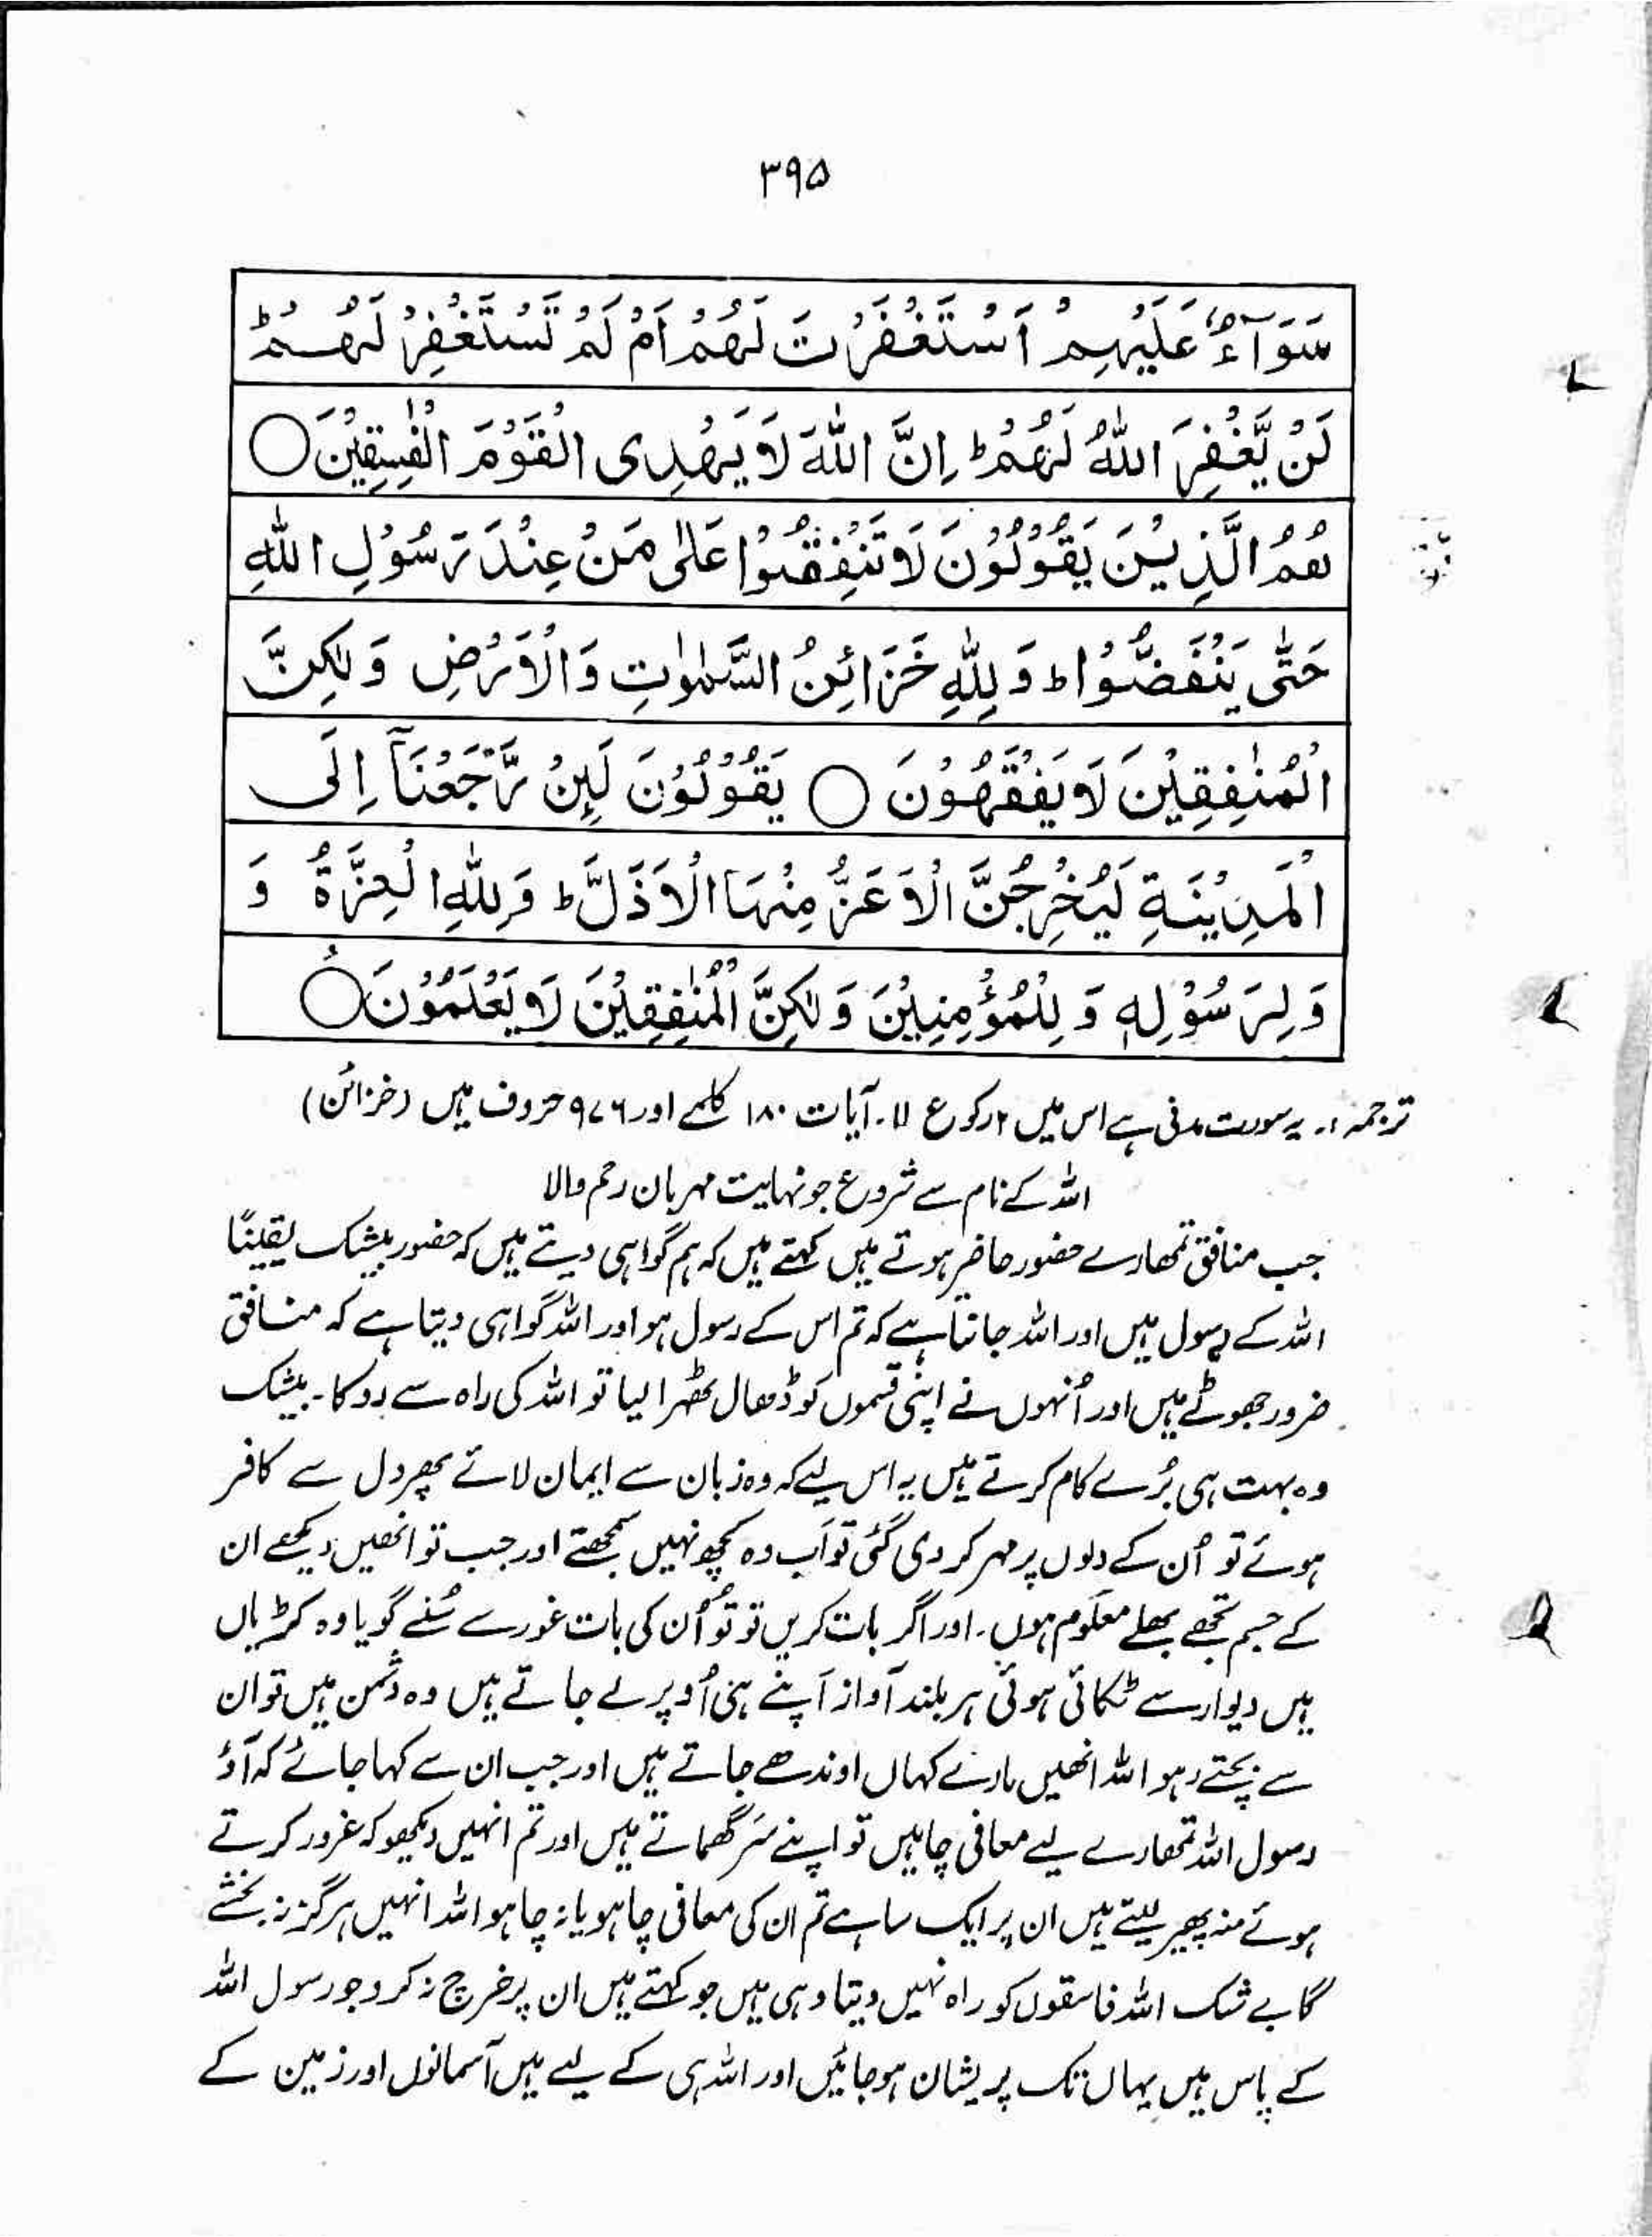 ۳۹۵
سَوَآءٌ عَلَيْهِمْ اَسْتَغْفَرْتَ لَهُمْ اَمْ لَمْ تَسْتَغْفِرْ لَهُمْ ؕ
لَنْ يَّغْفِرَ اللّٰهُ لَهُمْ ؕ اِنَّ اللّٰهَ لَا يَهْدِى الْقَوْمَ الْفٰسِقِيْنَ ○
هُمُ الَّذِيْنَ يَقُوْلُوْنَ لَا تُنْفِقُوْا عَلٰى مَنْ عِنْدَ رَسُوْلِ اللّٰهِ
حَتّٰى يَنْفَضُّوْا ؕ وَ لِلّٰهِ خَزَائِنُ السَّمٰوٰتِ وَالْاَرْضِ وَلٰكِنَّ
الْمُنٰفِقِيْنَ لَا يَفْقَهُوْنَ ○ يَقُوْلُوْنَ لَئِنْ رَّجَعْنَآ اِلَى
الْمَدِيْنَةِ لَيُخْرِجُنَّ الْاَعَزُّ مِنْهَا الْاَذَلَّ ؕ وَلِلّٰهِ الْعِزَّةُ وَ
وَلِرَسُوْلِهٖ وَ لِلْمُؤْمِنِيْنَ وَلٰكِنَّ الْمُنٰفِقِيْنَ لَا يَعْلَمُوْنَ ○
ترجمہ:۔ یہ سورت مدنی ہے اس میں ۲ رکوع ۱۱۔ آیات ۱۸۰ کلمے اور ۹۷۶ حروف ہیں (خزائن)
اللہ کے نام سے شروع جو نہایت مہربان رحم والا
جب منافق تمھارے حضور حاضر ہوتے ہیں کہتے ہیں کہ ہم گواہی دیتے ہیں کہ حضور بیشک یقینًا
اللہ کے رسول ہیں اور اللہ جانتا ہے کہ تم اس کے رسول ہو اور اللہ گواہی دیتا ہے کہ منافق
ضرور جھوٹے ہیں اور اُنہوں نے اپنی قسموں کو ڈھال ٹھرا لیا تو اللہ کی راہ سے روکا۔ بیشک
وہ بہت ہی بُرے کام کرتے ہیں یہ اس لیے کہ وہ زبان سے ایمان لائے پھر دل سے کافر
ہوئے تو اُن کے دلوں پر مہر کر دی گئی تو اَب وہ کچھ نہیں سمجھتے اور جب تو انھیں دیکھے ان
کے جسم تجھے بھلے معلوم ہوں۔ اور اگر بات کریں تو تُو اُن کی بات غور سے سُنے گویا وہ کڑیاں
ہیں دیوار سے ٹکائی ہوئی ہر بلند آواز اَپنے ہی اُوپر لے جاتے ہیں وہ دشمن ہیں تو ان
سے بچتے رہو اللہ انھیں مارے کہاں اوندھے جاتے ہیں اور جب ان سے کہا جائے کہ آؤ
رسول اللہ تمھارے لیے معافی چاہیں تو اپنے سَر گھماتے ہیں اور تم انہیں دیکھو کہ غرور کرتے
ہوئے منہ پھیر لیتے ہیں ان پر ایک سا ہے تم ان کی معافی چاہو یا نہ چاہو اللہ انہیں ہرگز نہ بخشے
گا بے شک اللہ فاسقوں کو راہ نہیں دیتا وہی ہیں جو کہتے ہیں ان پر خرچ نہ کرو جو رسول اللہ
کے پاس ہیں یہاں تک پریشان ہو جائیں اور اللہ ہی کے لیے ہیں آسمانوں اور زمین کے